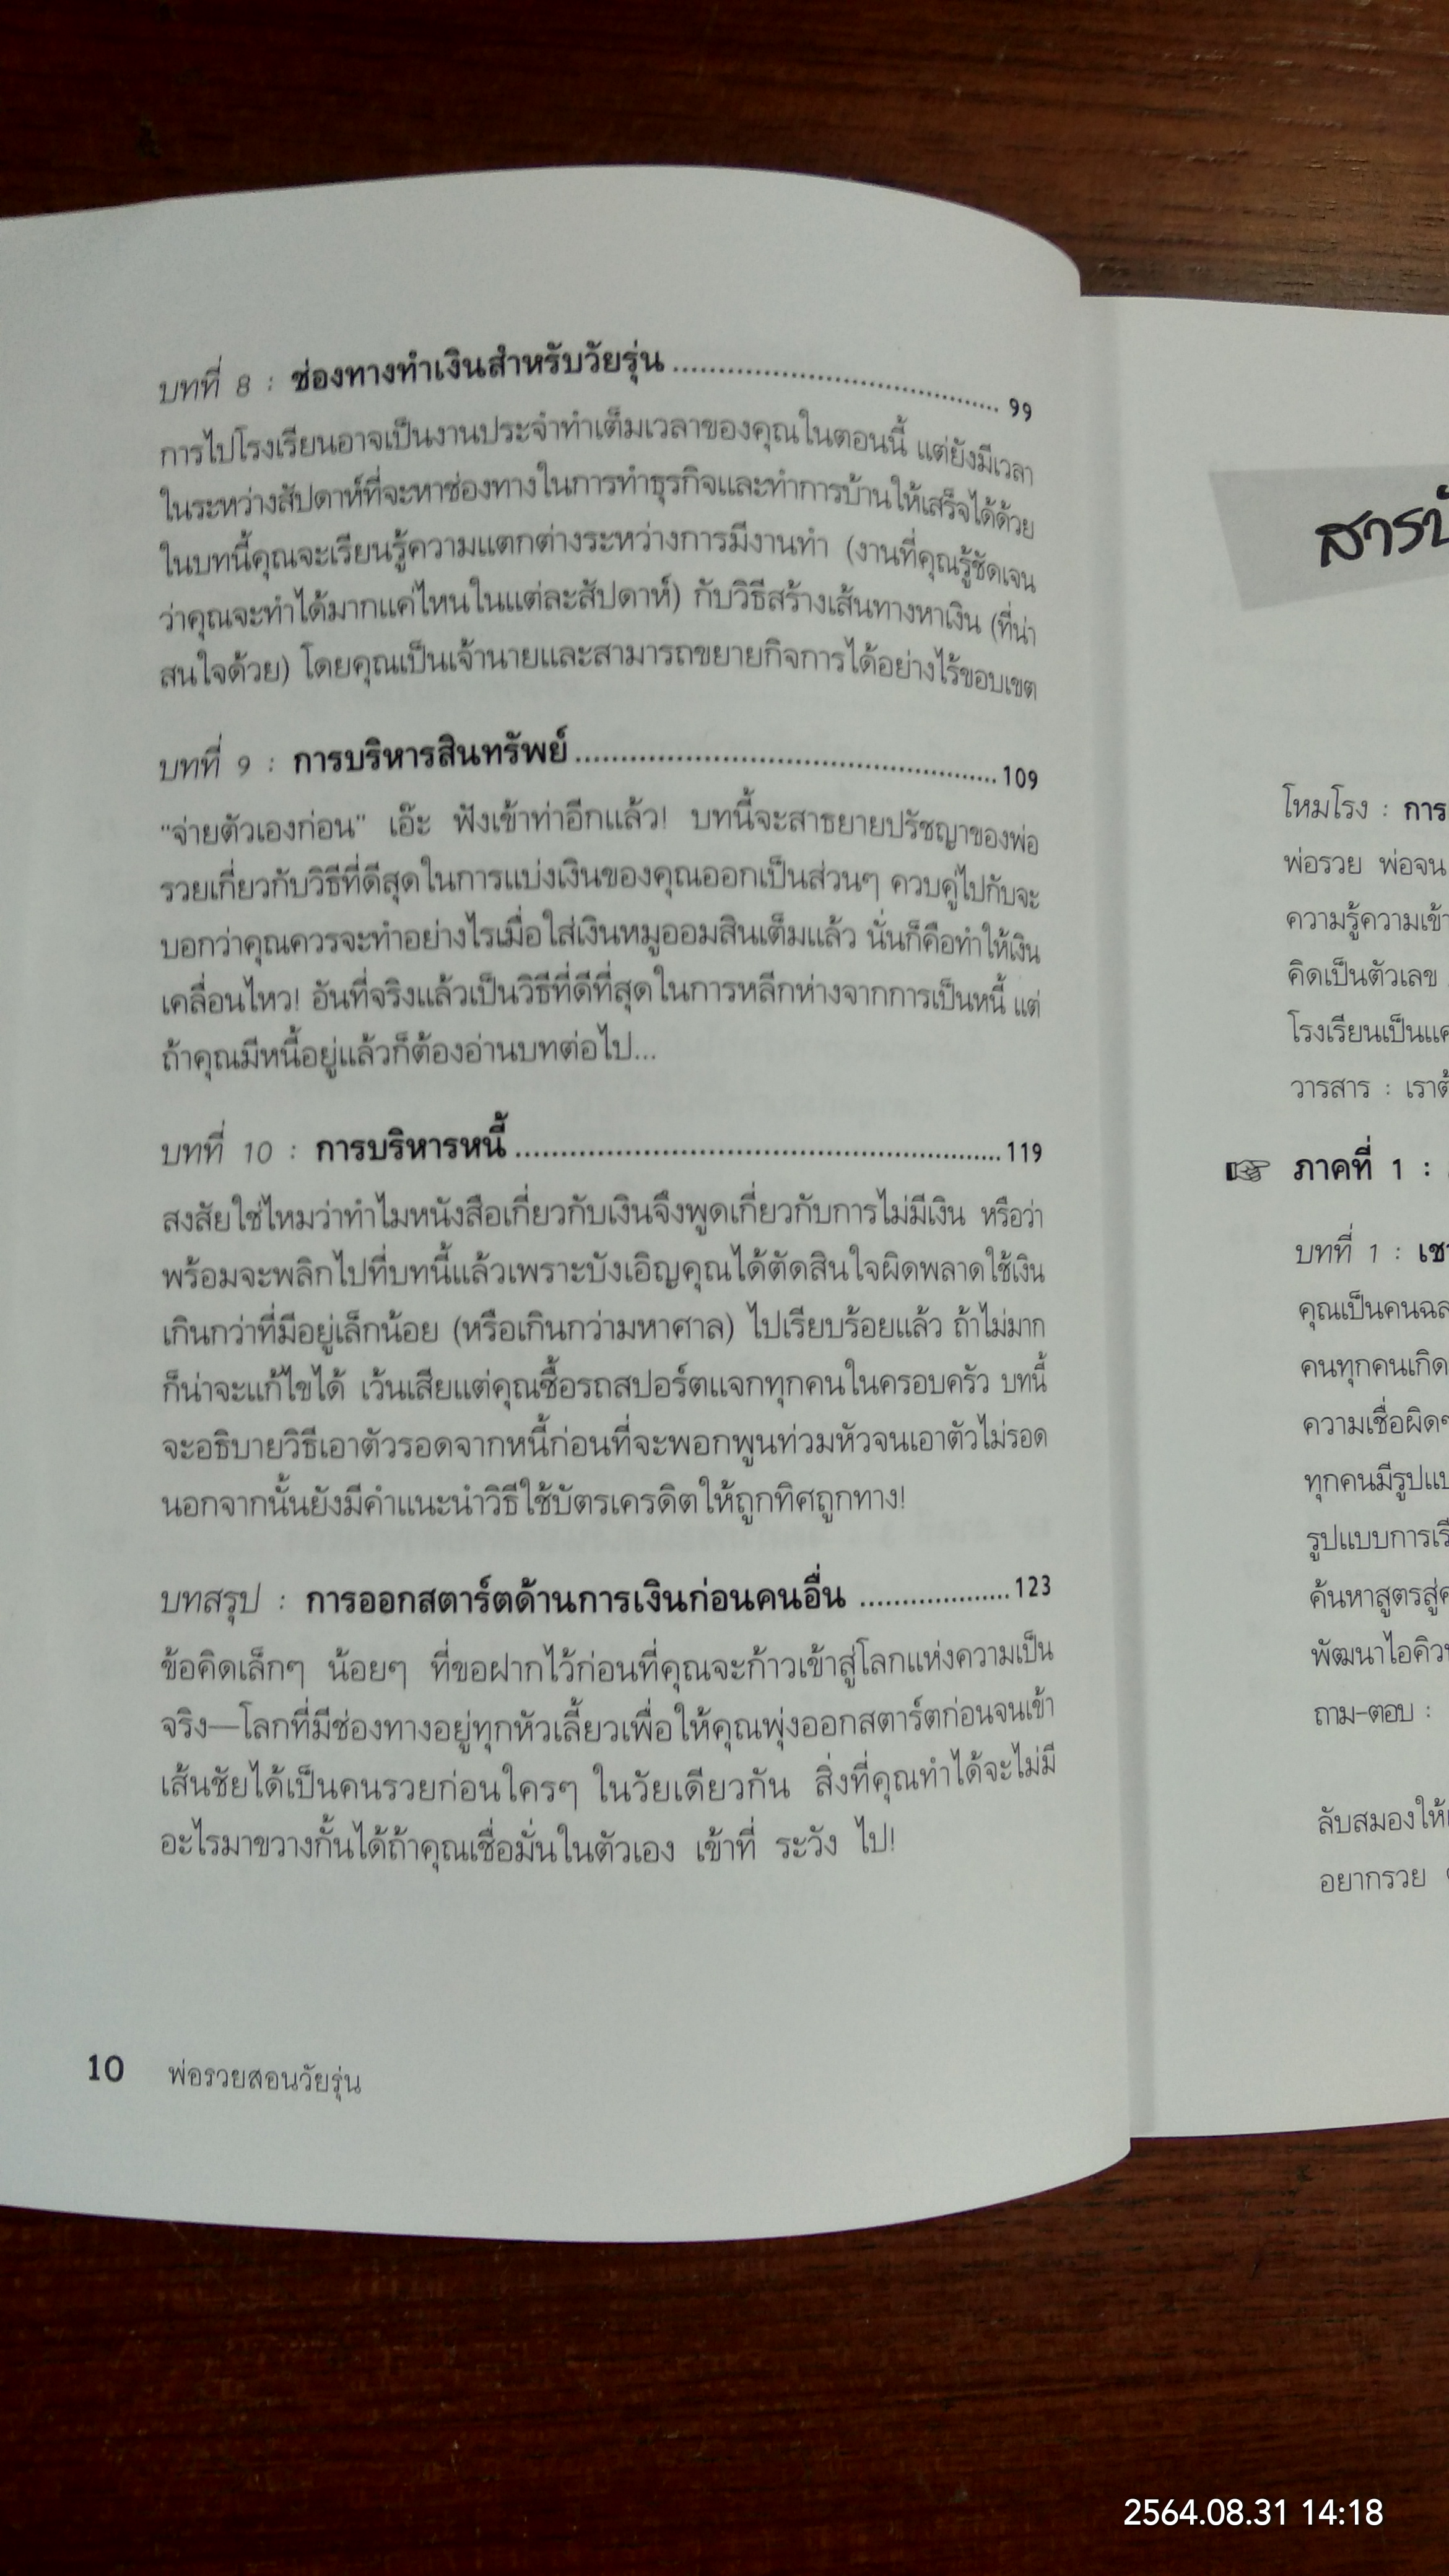 บทที่ 8 : ช่องทางทำเงินสำหรับวัยรุ่น .......................................... 99
การไปโรงเรียนอาจเป็นงานประจำทำเต็มเวลาของคุณในตอนนี้ แต่ยังมีเวลา
ในระหว่างสัปดาห์ที่จะหาช่องทางในการทำธุรกิจและทำการบ้านให้เสร็จได้ด้วย
ในบทนี้คุณจะเรียนรู้ความแตกต่างระหว่างการมีงานทำ (งานที่คุณรู้ชัดเจน
ว่าคุณจะทำได้มากแค่ไหนในแต่ละสัปดาห์) กับวิธีสร้างเส้นทางหาเงิน (ที่น่า
สนใจด้วย) โดยคุณเป็นเจ้านายและสามารถขยายกิจการได้อย่างไร้ขอบเขต
บทที่ 9 : การบริหารสินทรัพย์ ..................................................... 109
“จ่ายตัวเองก่อน” เอ๊ะ ฟังเข้าท่าอีกแล้ว! บทนี้จะสาธยายปรัชญาของพ่อ
รวยเกี่ยวกับวิธีที่ดีสุดในการแบ่งเงินของคุณออกเป็นส่วนๆ ควบคู่ไปกับจะ
บอกว่าคุณควรจะทำอย่างไรเมื่อใส่เงินหมูออมสินเต็มแล้ว นั่นก็คือทำให้เงิน
เคลื่อนไหว! อันที่จริงแล้วเป็นวิธีที่ดีที่สุดในการหลีกห่างจากการเป็นหนี้ แต่
ถ้าคุณมีหนี้อยู่แล้วก็ต้องอ่านบทต่อไป...
บทที่ 10 : การบริหารหนี้ ..................................................... 119
สงสัยใช่ไหมว่าทำไมหนังสือเกี่ยวกับเงินจึงพูดเกี่ยวกับการไม่มีเงิน หรือว่า
พร้อมจะพลิกไปที่บทนี้แล้วเพราะบังเอิญคุณได้ตัดสินใจผิดพลาดใช้เงิน
เกินกว่าที่มีอยู่เล็กน้อย (หรือเกินกว่ามหาศาล) ไปเรียบร้อยแล้ว ถ้าไม่มาก
ก็น่าจะแก้ไขได้ เว้นเสียแต่คุณซื้อรถสปอร์ตแจกทุกคนในครอบครัว บทนี้
จะอธิบายวิธีเอาตัวรอดจากหนี้ก่อนที่จะพอกพูนท่วมหัวจนเอาตัวไม่รอด
นอกจากนั้นยังมีคำแนะนำวิธีใช้บัตรเครดิตให้ถูกทิศถูกทาง!
บทสรุป : การออกสตาร์ตด้านการเงินก่อนคนอื่น ................... 123
ข้อคิดเล็กๆ น้อยๆ ที่ขอฝากไว้ก่อนที่คุณจะก้าวเข้าสู่โลกแห่งความเป็น
จริง—โลกที่มีช่องทางอยู่ทุกหัวเลี้ยวเพื่อให้คุณพุ่งออกสตาร์ตก่อนจนเข้า
เส้นชัยได้เป็นคนรวยก่อนใครๆ ในวัยเดียวกัน สิ่งที่คุณทำได้จะไม่มี
อะไรมาขวางกั้นได้ถ้าคุณเชื่อมั่นในตัวเอง เข้าที่ ระวัง ไป!
10 พ่อรวยสอนวัยรุ่น
โหมโรง : การ
พ่อรวย พ่อจน
ความรู้ความเข้า
คิดเป็นตัวเลข
โรงเรียนเป็น
วารสาร :
ภาคที่ 1 :
บทที่ 1 :
คุณเป็นคน
คนทุกคนเกิด
ความเชื่อผิดๆ
ทุกคนมี
รูปแบบการ
ค้นหาสูตรสู่
พัฒนาไอคิว
ถาม-ตอบ :
ลับสมองให้
อยากรวย
2564.08.31 14:18